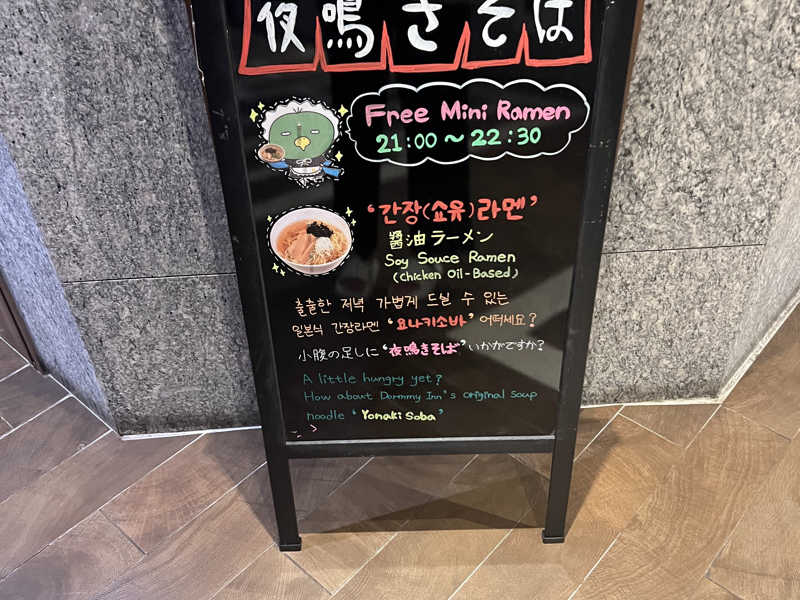 夜鳴きそば
Free Mini Ramen
21:00~22:30
'간장(쇼유)라멘'
醤油ラーメン
Soy Souce Ramen
(Chicken Oil-Based)
출출한 저녁 가볍게 드실 수 있는
일본식 간장라멘 '요나키소바' 어떠세요?
小腹の足しに'夜鳴きそば'いかがですか?
A little hungry yet?
How about Dormmy Inn's original soup
noodle 'Yonaki Soba'